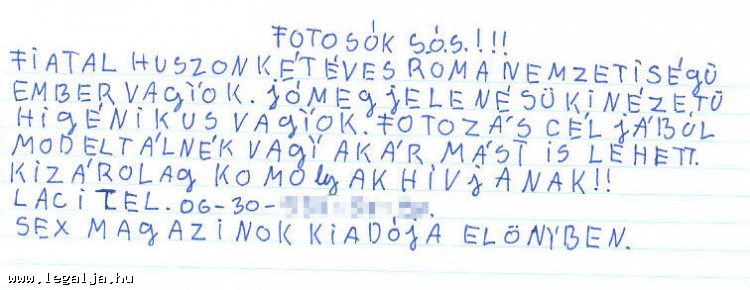 FOTOSÓK S.Ó.S.!!!
FIATAL HUSZONKÉTÉVES ROMA NEMZETISÉGŰ
EMBER VAGÍOK. JÓMEGJELENÉSŰ KINÉZETŰ
HIGÉNIKUS VAGÍOK. FOTOZÁS CÉLJÁBÓL
MODELTÁLNÉK VAGÍ AKÁR MÁST IS LEHETT.
KIZÁROLAG KOMOLY AK HÍVJANAK!!
LACI TEL. 06-30-
SEX MAGAZINOK KIADÓJA ELŐNYBEN.
www.legalja.hu